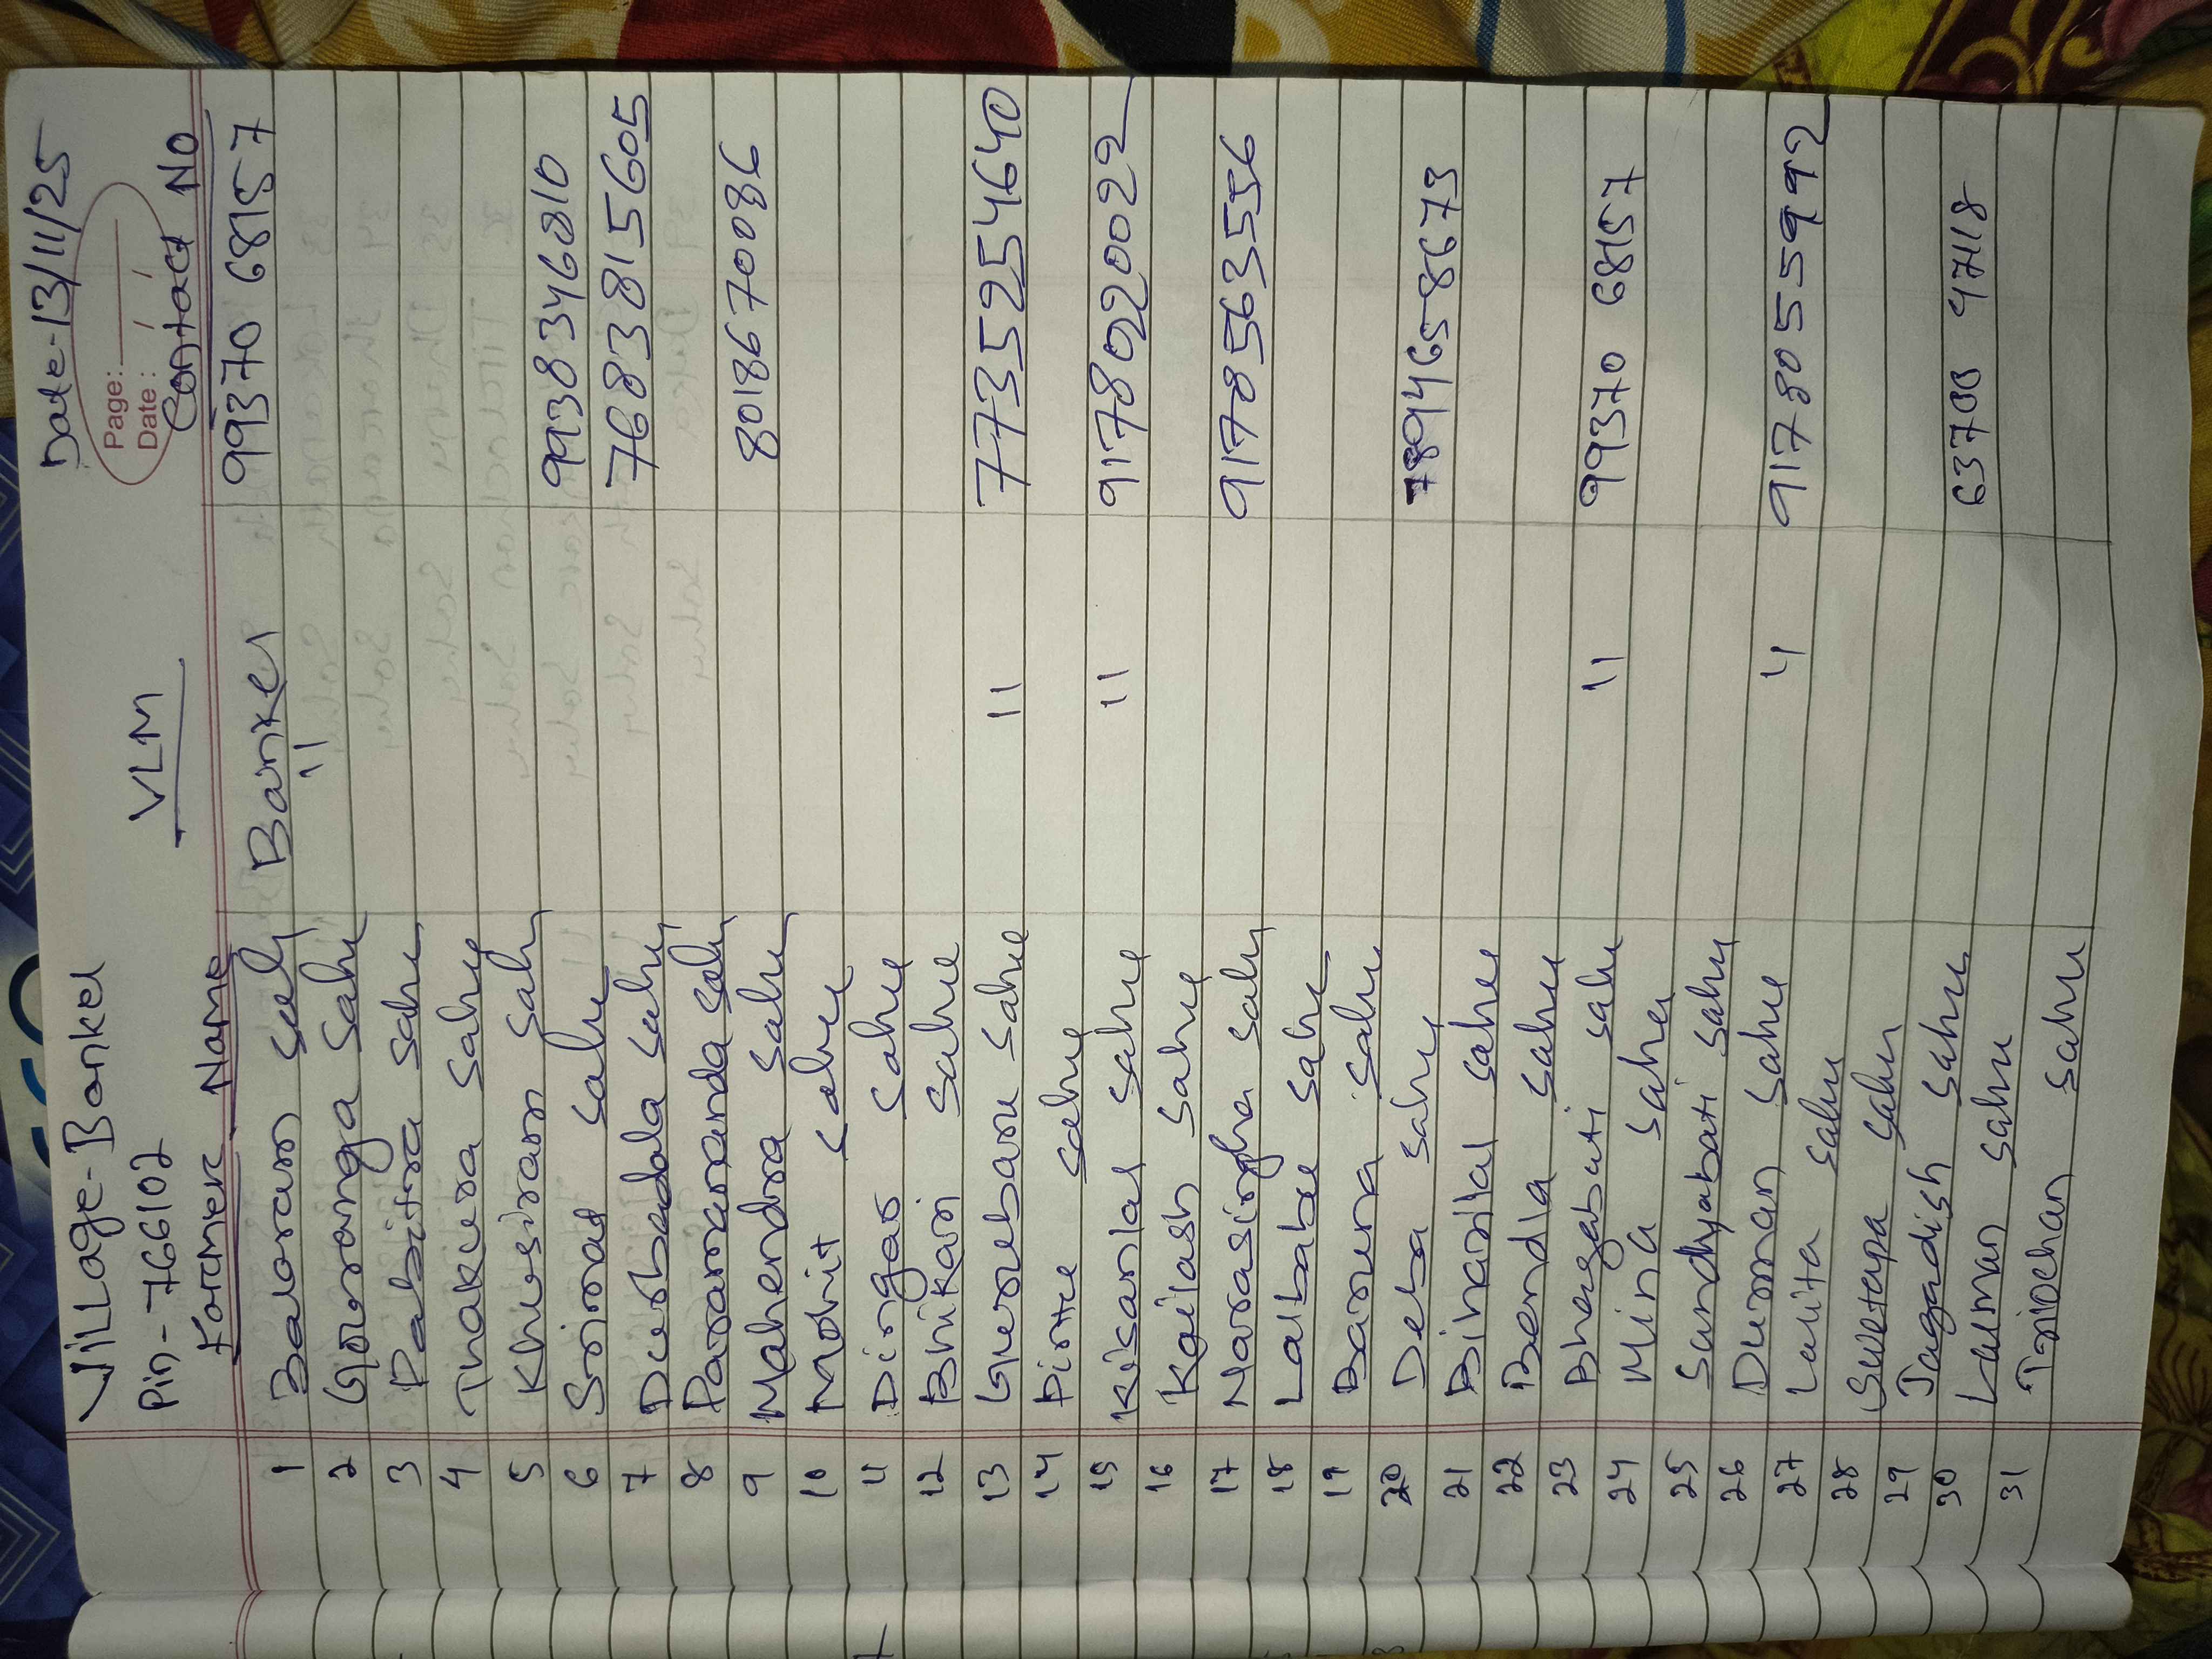 Date-13/11/25
Page:
Date:
Village-Bankel
Pin-766102
VLM
Farmer Name Contact No
1 Balaram Sahu Bankel 99370 68157
2 Gouranga Sahu 11
3 Pabitra Sahu
4 Thakura Sahu
5 Khusiram Sahu 9938346810
6 Srimad Sahu 7683815605
7 Durbadala Sahu
8 Paramananda Sahu 8018670086
9 Mahendra Sahu
10 Mohit Sahu
11 Dingar Sahu
12 Bhikari Sahu
13 Gurubaru Sahu 11 7735254640
14 Pintu Sahu
15 Kisanlal Sahu 11 9178022002
16 Kailash Sahu
17 Narasingha Sahu 9178563556
18 Lalbabu Sahu
19 Baruna Sahu
20 Deba Sahu 7894658673
21 Biharilal Sahu
22 Bendla Sahu
23 Bhagabati Sahu 11 99370 68157
24 Mina Sahu
25 Sandyabati Sahu
26 Duman Sahu 4 9178055992
27 Lalita Sahu
28 Suvetapa Sahu
29 Jagadish Sahu 97118
30 Lalman Sahu
31 Trilochan Sahu